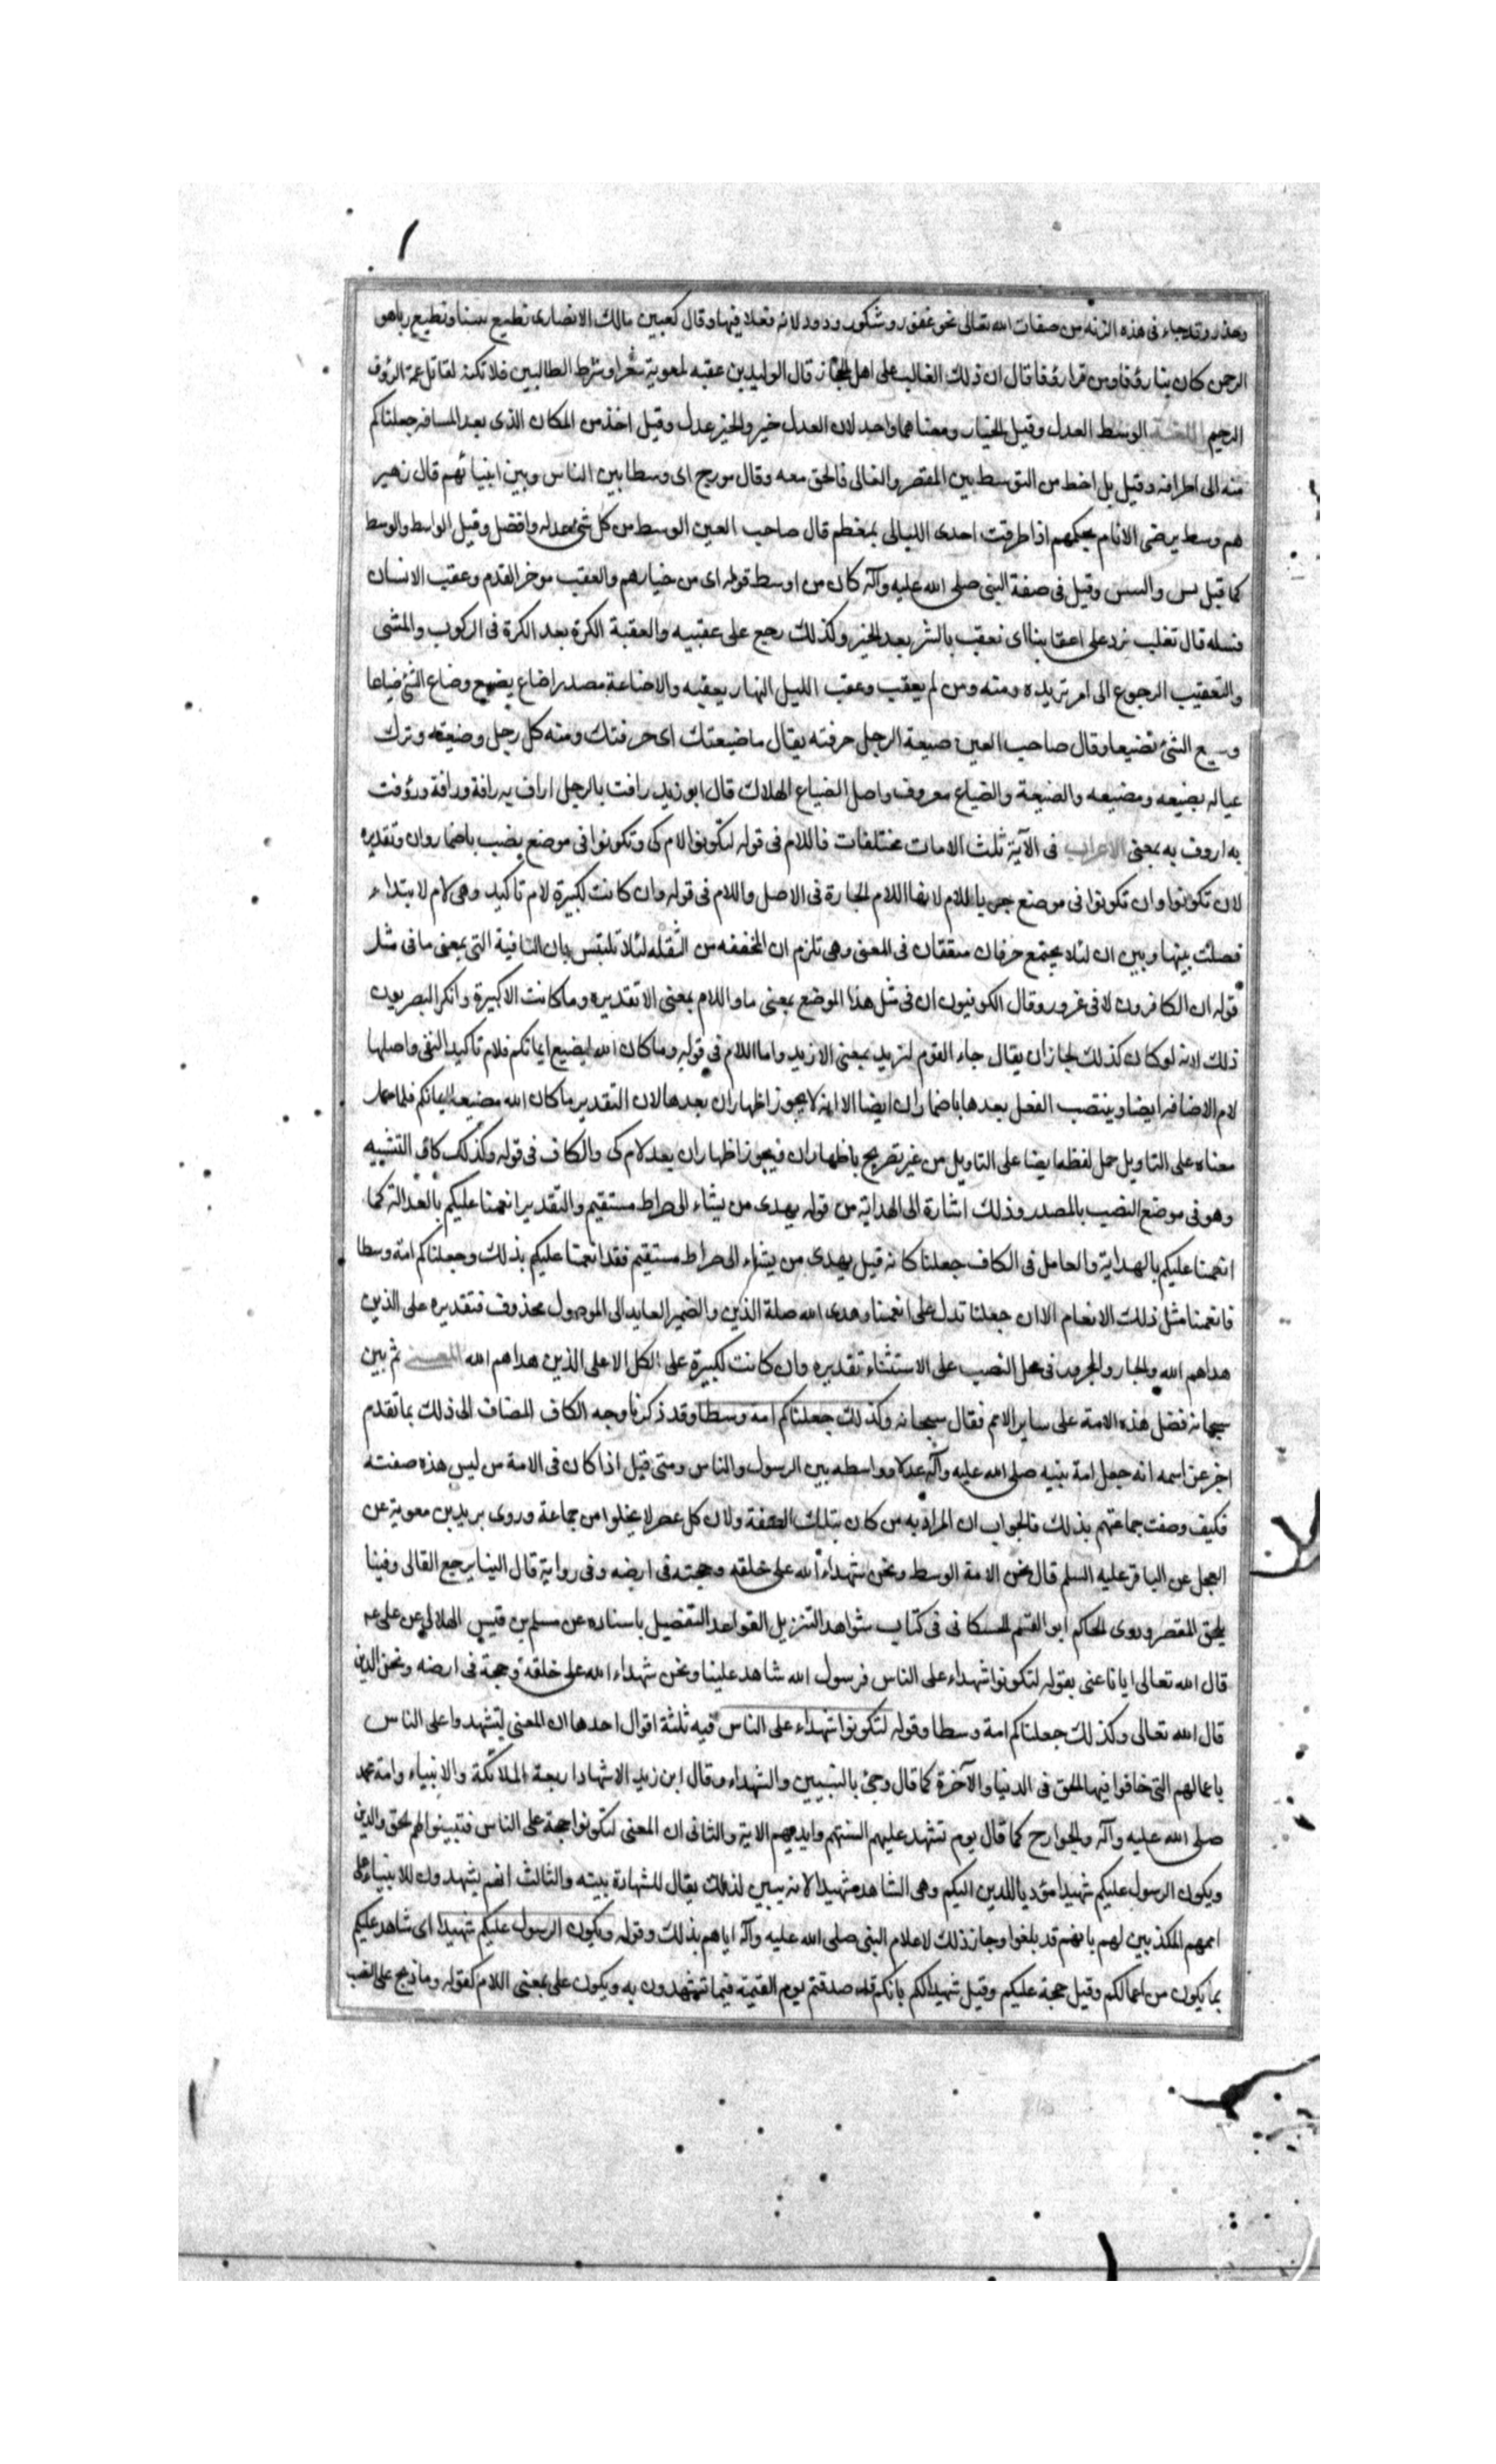 وحذر وقد جاء فى هذه الزنه من صفات الله تعالى نحو غفور وشكور ودود لانه فعلا فيها وقال كعب بن مالك الانصارى نطيع نبينا ونطيع ربا هو
الرحمن كان بنا رؤفا ومن قرا رؤفا قال ان ذلك الغالب على اهل الحجاز قال الوليد بن عقبه لمعوية شعرا وشرط الطالبين فلا تكنه لقاتل عمه الرؤف
الرحيم اللغة الوسط العدل وقيل الخيار ومعناهما واحد لان العدل خير والخير عدل وقيل اخذ من المكان الذى بعد المسافه جعلناكم
منه الى اطرافه وقيل بل اخذ من التوسط بين المقتصر والغالى فالحق معه وقال مورج اى وسطا بين الناس وبين انبيائهم قال زهير
هم وسط يرضى الانام بحكمهم اذا طرقت احدى الليالى بمعظم قال صاحب العين الوسط من كل شئ عدله وافضل وقيل الواسط والوسط
كما قيل يبس واليبس وقيل فى صفة النبى صلى الله عليه وآله كان من اوسط قومه اى من خيارهم والعقب موخر القدم وعقيب الانسان
نسله قال تغلب نرد على اعقابنا اى نعقب بالشر بعد الخير وكذلك رجع على عقبيه والعقبة الكرة بعد الكرة فى الركوب والمشى
والتعقيب الرجوع الى امر تريده ومنه ومن لم يعقب وعقب الليل النهار يعقبه والاضاعة مصدر اضاع يضيع وضاع الشئ ضياعا
وضيع الشئ تضييعا وقال صاحب العين ضيعة الرجل حرفته يقال ما ضيعتك اى حرفتك ومنه كل رجل وضيعته وترك
عياله بضيعه ومضيعه والضيعة والضياع معروف واصل الضياع الهلاك قال ابو زيد رافت بالرجل اراف به رافة ورافة ورؤفت
به اروف به بمعنى الاعراب فى الآية ثلث لامات مختلفات فاللام فى قوله لتكونوا لام كى وتكونوا فى موضع نصب باضمار وان وتقديره
لان تكونوا وان تكونوا فى موضع جر باللام لانها اللام الجارة فى الاصل واللام فى قوله وان كانت لكبيرة لام تاكيد وهى لام لابتداء
فصلت بينها وبين ان لئلا يجتمع حرفان متفقان فى المعنى وهى تلزم ان المخففه من الثقله لئلا تلتبس بان النافية التى بمعنى ما فى مثل
قوله ان الكافرون لا فى غرور وقال الكوفيون ان فى مثل هذا الموضع بمعنى ما واللام بمعنى الا تقديره وما كانت الا كبيرة وانكر البصريون
ذلك لانه لو كان كذلك لجاز ان يقال جاء القوم لزيد بمعنى الا زيد واما اللام فى قوله وما كان الله ليضيع ايمانكم فلام تاكيد النفى واصلها
لام الاضافه ايضا وينتصب الفعل بعدها باضمار ان ايضا الا انه لا يجوز اظهار ان بعدها لان التقدير ما كان الله مضيعا ايمانكم فلما حمل
معناه على التاويل حمل لفظه ايضا على التاويل من غير تصريح باظهار ان فيجوز اظهار ان بعد لام كى والكاف فى قوله وكذلك كاف التشبيه
وهو فى موضع النصب بالمصدر وذلك اشارة الى الهداية من قوله يهدى من يشاء الى صراط مستقيم والتقدير انعمنا عليكم بالعدالة كما
انعمنا عليكم بالهداية والعامل فى الكاف جعلنا كانه قيل يهدى من يشاء الى صراط مستقيم فقد انعمنا عليكم بذلك وجعلناكم امة وسطا
فانعمنا مثل ذلك الانعام الا ان جعلنا تدل على انعمنا وهدى الله صلة الذين والضمير العايد الى الموصول محذوف فتقديره على الذين
هداهم الله والجار والمجرور فى محل النصب على الاستثناء تقديره وان كانت لكبيرة على الكل الا على الذين هداهم الله المعنى ثم بين
سبحانه فضل هذه الامة على ساير الامم فقال سبحانه وكذلك جعلناكم امة وسطا وقد ذكرنا وجه الكاف المضاف الى ذلك بما تقدم
اخبر عز اسمه انه جعل امة نبيه صلى الله عليه وآله عدلا وواسطه بين الرسول والناس ومتى قيل اذا كان فى الامة من ليس هذه صفته
فكيف وصفت جماعتهم بذلك فالجواب ان المراد به من كان بتلك الصفة ولان كل عصر لا يخلو من جماعة وروى بريد بن معوية عن
العجلى عن الباقر عليه السلم قال نحن الامة الوسط ونحن شهداء الله على خلقه وحجته فى ارضه وفى رواية قال الينا يرجع الغالى وفينا
يلحق المقصر وروى الحاكم ابو القسم الحسكانى فى كتاب شواهد التنزيل القواعد التفضيل باسناده عن مسلم بن قيس الهلالى عن على عم
قال الله تعالى ايانا عنى بقوله لتكونوا شهداء على الناس فرسول الله شاهد علينا ونحن شهداء الله على خلقه وحجة فى ارضه ونحن الذين
قال الله تعالى وكذلك جعلناكم امة وسطا وقوله لتكونوا شهداء على الناس فيه ثلثة اقوال احدها ان المعنى لتشهدوا على الناس
باعمالهم التى خافوا فيها الحق فى الدنيا والآخرة كما قال وجئ بالنبيين والشهداء وقال ابن زيد الاشهاد اربعة الملائكة والانبياء وامة محمد
صلى الله عليه وآله والجوارح كما قال يوم تشهد عليهم السنتهم وايديهم الاية والثانى ان المعنى لتكونوا حجة على الناس فتبينوا لهم الحق والدين
ويكون الرسول عليكم شهيدا مؤديا للدين اليكم وهى الشاهد شهيدا لانه يبين لذلك يقال للشهادة بينه والثالث انهم يشهدون للانبياء على
اممهم المكذبين لهم بانهم قد بلغوا وجاز ذلك لاعلام النبى صلى الله عليه وآله اياهم بذلك وقوله ويكون الرسول عليكم شهيدا اى شاهد عليكم
بما يكون من اعمالكم وقيل حجة عليكم وقيل شهيدا لكم بانكم قد صدقتم يوم القيمة فيما تشهدون به ويكون على بمعنى اللام كقوله وما ذبح على النصب